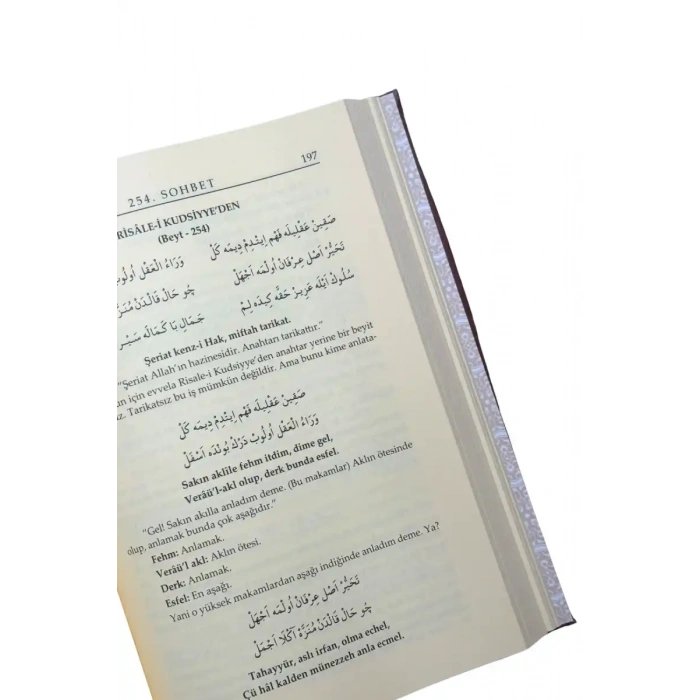 197
254. SOHBET
RİSÂLE-İ KUDSİYYE'DEN
(Beyt - 254)
صَقِينْ عَقْلِيلَه فَهْم اِيتْدِمْ دِيمَه كَلْ وَرَاءُ الْعَقْل اُولُوبْ
تَحَيُّرْ اَصْلِ عِرْفَانْ اُولْمَه اَجْهَلْ چُو حَالْ قَالْدَنْ مُنَزَّه
سُلُوكْ اَيْلَه عَزِيزْ حَقَّه كِيدَه لِمْ جَمَالِ بَا كَمَالَه سَيْر
Şeriat kenz-i Hak, miftah tarikat.
"Şeriat Allah'ın hazinesidir. Anahtarı tarikattır."
için evvela Risale-i Kudsiyye'den anahtar yerine bir beyit
Tarikatsız bu iş mümkün değildir. Ama bunu kime anlata-
صَقِينْ عَقْلِيلَه فَهْم اِيتْدِمْ دِيمَه كَلْ
وَرَاءُ الْعَقْل اُولُوبْ دَرْكْ بُونْدَه اَسْفَلْ
Sakın aklile fehm itdim, dime gel,
Verâü'l-akl olup, derk bunda esfel.
"Gel! Sakın akılla anladım deme. (Bu makamlar) Aklın ötesinde
olup, anlamak bunda çok aşağıdır."
Fehm: Anlamak.
Verâü'l akl: Aklın ötesi.
Derk: Anlamak.
Esfel: En aşağı.
Yani o yüksek makamlardan aşağı indiğinde anladım deme. Ya?
تَحَيُّرْ اَصْلِ عِرْفَانْ اُولْمَه اَجْهَلْ
چُو حَالْ قَالْدَنْ مُنَزَّهْ اَكْلَا اَجْمَلْ
Tahayyür, aslı irfan, olma echel,
Çü hâl kalden münezzeh anla ecmel.